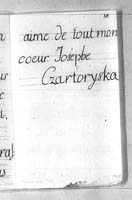 aime de tout mon
coeur Josephe
Czartoryska